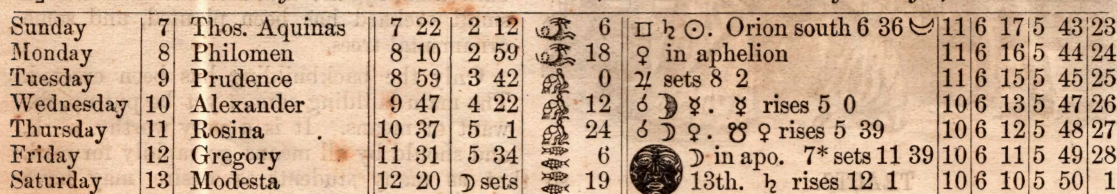 Sunday 7 Thos. Aquinas 7 22 2 12 6 □ ♄ ☉. Orion south 6 36 11 6 17 5 43 23
Monday 8 Philomen 8 10 2 59 18 ♀ in aphelion 11 6 16 5 44 24
Tuesday 9 Prudence 8 59 3 42 0 ♃ sets 8 2 11 6 15 5 45 25
Wednesday 10 Alexander 9 47 4 22 12 ☌ ☽ ☿. ☿ rises 5 0 10 6 13 5 47 26
Thursday 11 Rosina 10 37 5 1 24 ☌ ☽ ♀. ☋ ♀ rises 5 39 10 6 12 5 48 27
Friday 12 Gregory 11 31 5 34 6 ☽ in apo. 7* sets 11 39 10 6 11 5 49 28
Saturday 13 Modesta 12 20 ☽ sets 19 13th. ♄ rises 12 1 10 6 10 5 50 1